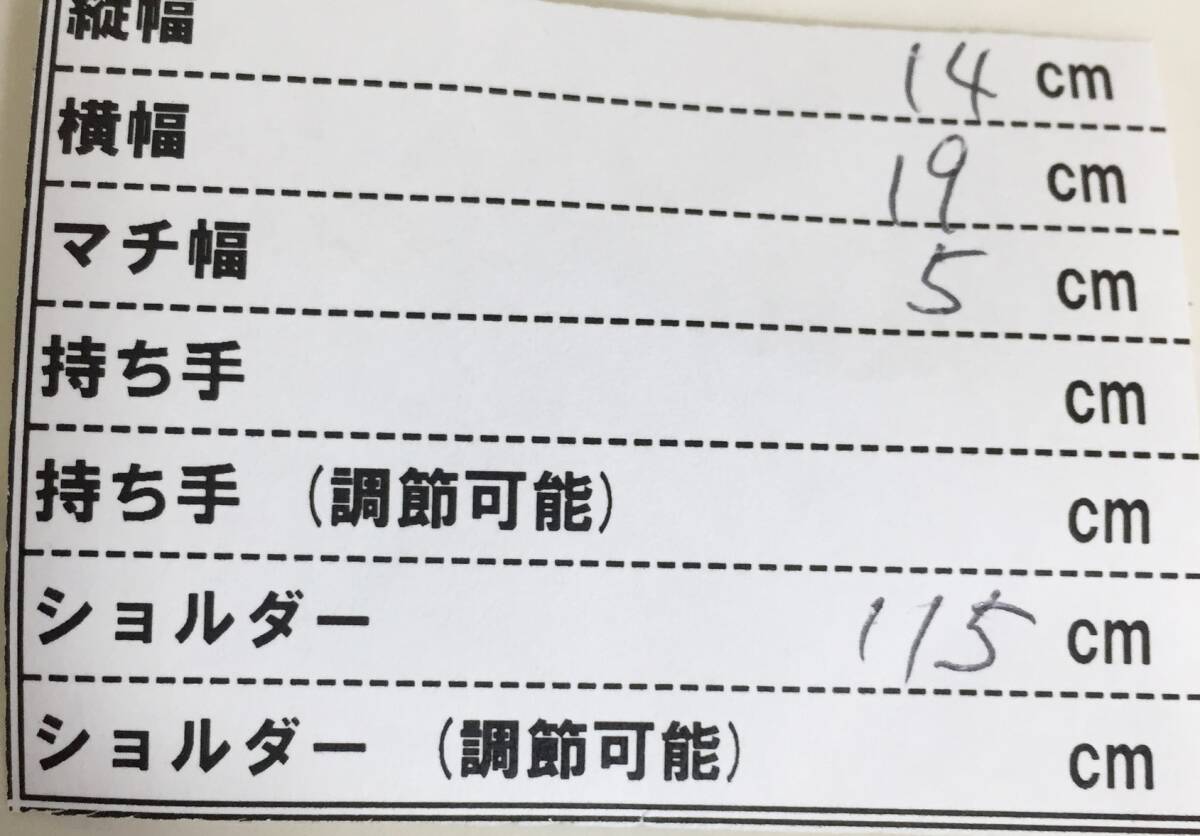 縦幅 14 cm
横幅 19 cm
マチ幅 5 cm
持ち手 cm
持ち手 (調節可能) cm
ショルダー 115 cm
ショルダー (調節可能) cm